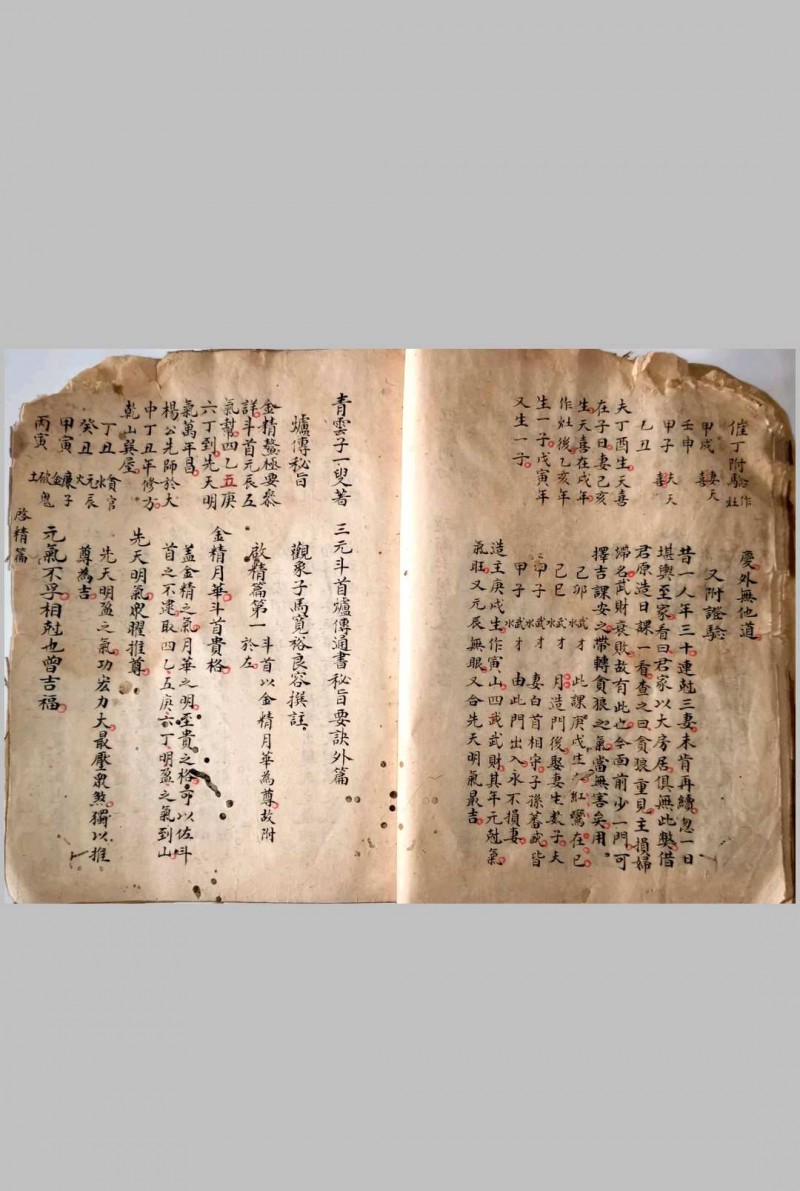 催丁附驗作灶
甲戌 妻天喜
壬申
甲子 夫天喜
乙丑
夫丁酉生天喜
在子日妻己亥
生天喜在戌年
作灶後乙亥年
生一子戊寅年
又生一子
慶外無他道
又附證驗
昔一人年三十連尅三妻未肯再續忽一日
堪輿至家看曰君家以大房居俱無此弊借
君原造日課一看查之曰貪狼重見主損婦
歸名武財衰敗故有此也今面前少一門可
擇吉課安之帶轉貪狼之氣當無害矣用
己卯 武才水 此課庚戌生人紅鸞在巳
己巳 武才水 月造門後娶妻生数子夫
甲子 武才水 妻白首相守子孫蕃盛皆
甲子 武才水 由此門出入永不損妻
造主庚戌生作寅山四武武財其年元尅氣
氣旺又元辰無眠又合先天明氣最吉
青雲子一叟著 三元斗首爐傳通書秘旨要訣外篇
爐傳秘旨 觀象子馬寬裕良容撰註
金精鰲極要参
詳斗首元辰左
氣幫四乙五庚
六丁到先天明
氣萬年昌
楊公先師於大
中丁丑年修方
乾山巽屋
丁丑 貪官水
癸丑 元辰火
甲寅 廉子金
丙寅 破鬼土
啟精篇第一 斗首以金精月華為尊故附於左
金精月華斗首貴格
蓋金精之氣月華之明至貴之格可以佐斗
首之不逮取四乙五庚六丁明盈之氣到山
先天明氣眾曜推尊
先天明盈之氣功宏力大最壓衆煞獨以推
尊為吉
元氣不孚相尅也曾吉福
啓精篇